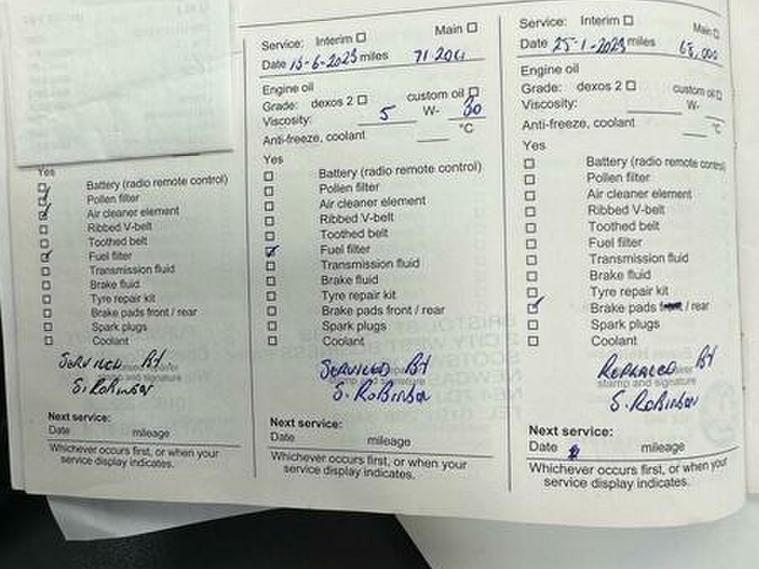 Yes
Battery (radio remote control)
Pollen filter
Air cleaner element
Ribbed V-belt
Toothed belt
Fuel filter
Transmission fluid
Brake fluid
Tyre repair kit
Brake pads front / rear
Spark plugs
Coolant
SERVICED BY
S. Robinson
Next service:
Date mileage
Whichever occurs first, or when your
service display indicates.
Service: Interim Main
Date 15-6-2023 miles
Engine oil
Grade: dexos 2 custom oil
Viscosity: 5 W- 30
Anti-freeze, coolant °C
Yes
Battery (radio remote control)
Pollen filter
Air cleaner element
Ribbed V-belt
Toothed belt
Fuel filter
Transmission fluid
Brake fluid
Tyre repair kit
Brake pads front / rear
Spark plugs
Coolant
SERVICED BY
stamp and signature
S. Robinson
Next service:
Date mileage
Whichever occurs first, or when your
service display indicates.
Service: Interim Main
Date 25-1-2023 miles 68,000
Engine oil
Grade: dexos 2 custom oil
Viscosity: W-
Anti-freeze, coolant °C
Yes
Battery (radio remote control)
Pollen filter
Air cleaner element
Ribbed V-belt
Toothed belt
Fuel filter
Transmission fluid
Brake fluid
Tyre repair kit
Brake pads front / rear
Spark plugs
Coolant
REPLACED BY
stamp and signature
S. Robinson
Next service:
Date mileage
Whichever occurs first, or when your
service display indicates.